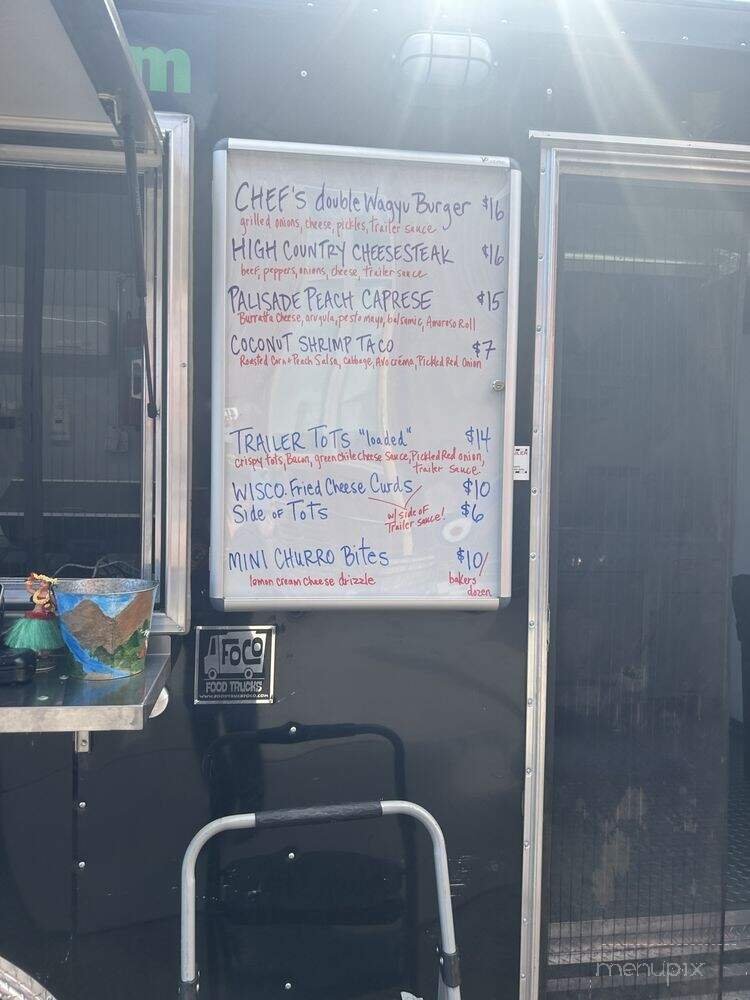 m
CHEF'S double Wagyu Burger $16
grilled onions, cheese, pickles, trailer sauce
HIGH COUNTRY CHEESESTEAK $16
beef, peppers, onions, cheese, trailer sauce
PALISADE PEACH CAPRESE $15
Burratta Cheese, arugula, pesto mayo, balsamic, Amoroso Roll
COCONUT SHRIMP TACO $7
Roasted Corn + Peach Salsa, Cabbage, Avo crema, Pickled Red Onion
TRAILER TOTS "loaded" $14
crispy tots, Bacon, green chile cheese sauce, Pickled Red onion,
trailer sauce
WISCO. Fried Cheese Curds $10
Side of Tots $6
w/ side of
Trailer sauce!
MINI CHURRO Bites $10/
lemon cream cheese drizzle bakers
dozen
FoCo
FOOD TRUCKS
menupix